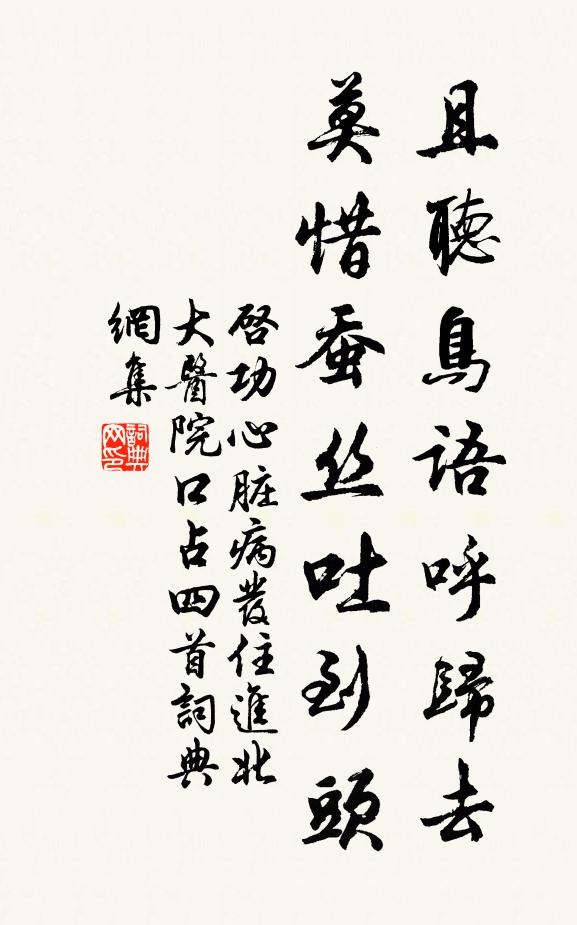 且聽鳥語呼歸去
莫惜蚕丝吐到頭
啓功心脏病發住進北
大醫院口占四首詞典
網集
詞典
网印